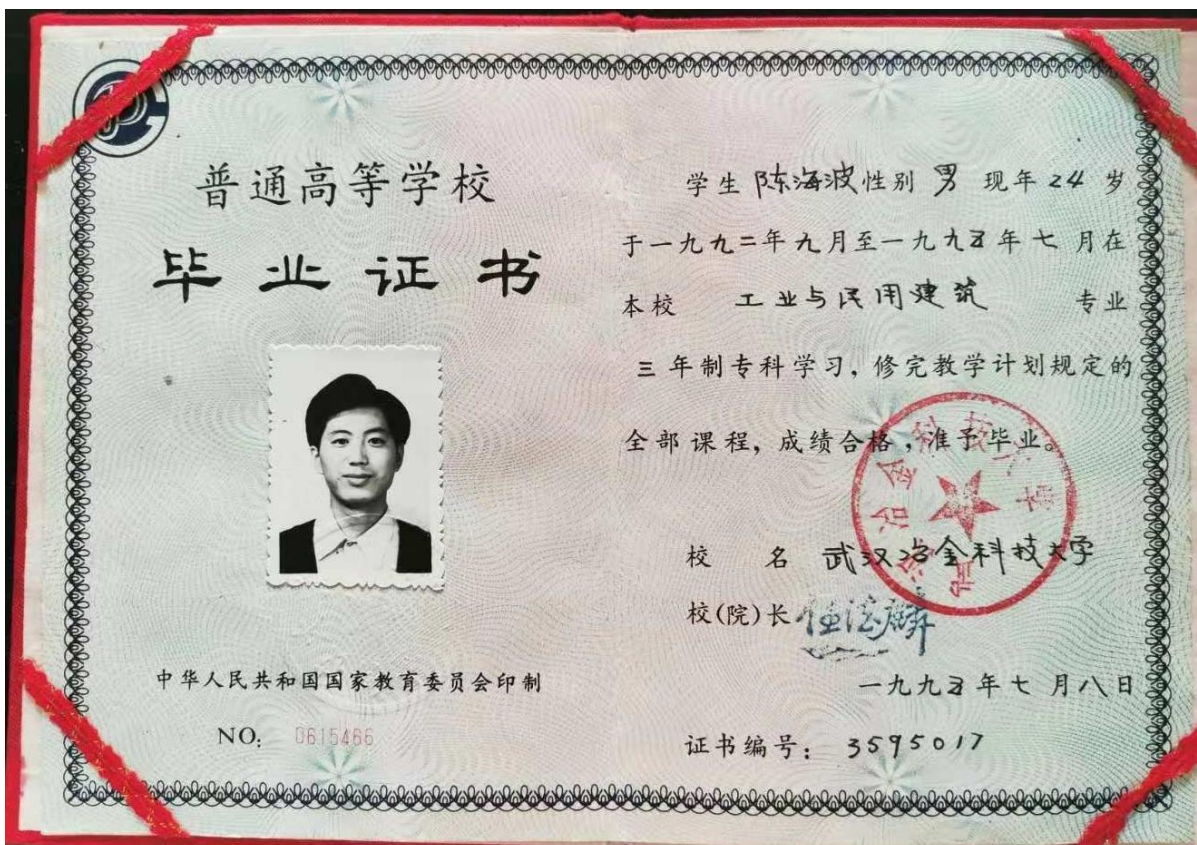 普通高等学校
毕业证书
中华人民共和国国家教育委员会印制
NO: 0615466
学生 陈海波 性别 男 现年 24 岁
于一九九二年九月至一九九五年七月在
本校 工业与民用建筑 专业
三年制专科学习，修完教学计划规定的
全部课程，成绩合格，准予毕业。
武汉冶金科技大学
校 名 武汉冶金科技大学
校(院)长
一九九五年七月八日
证书编号: 3595017